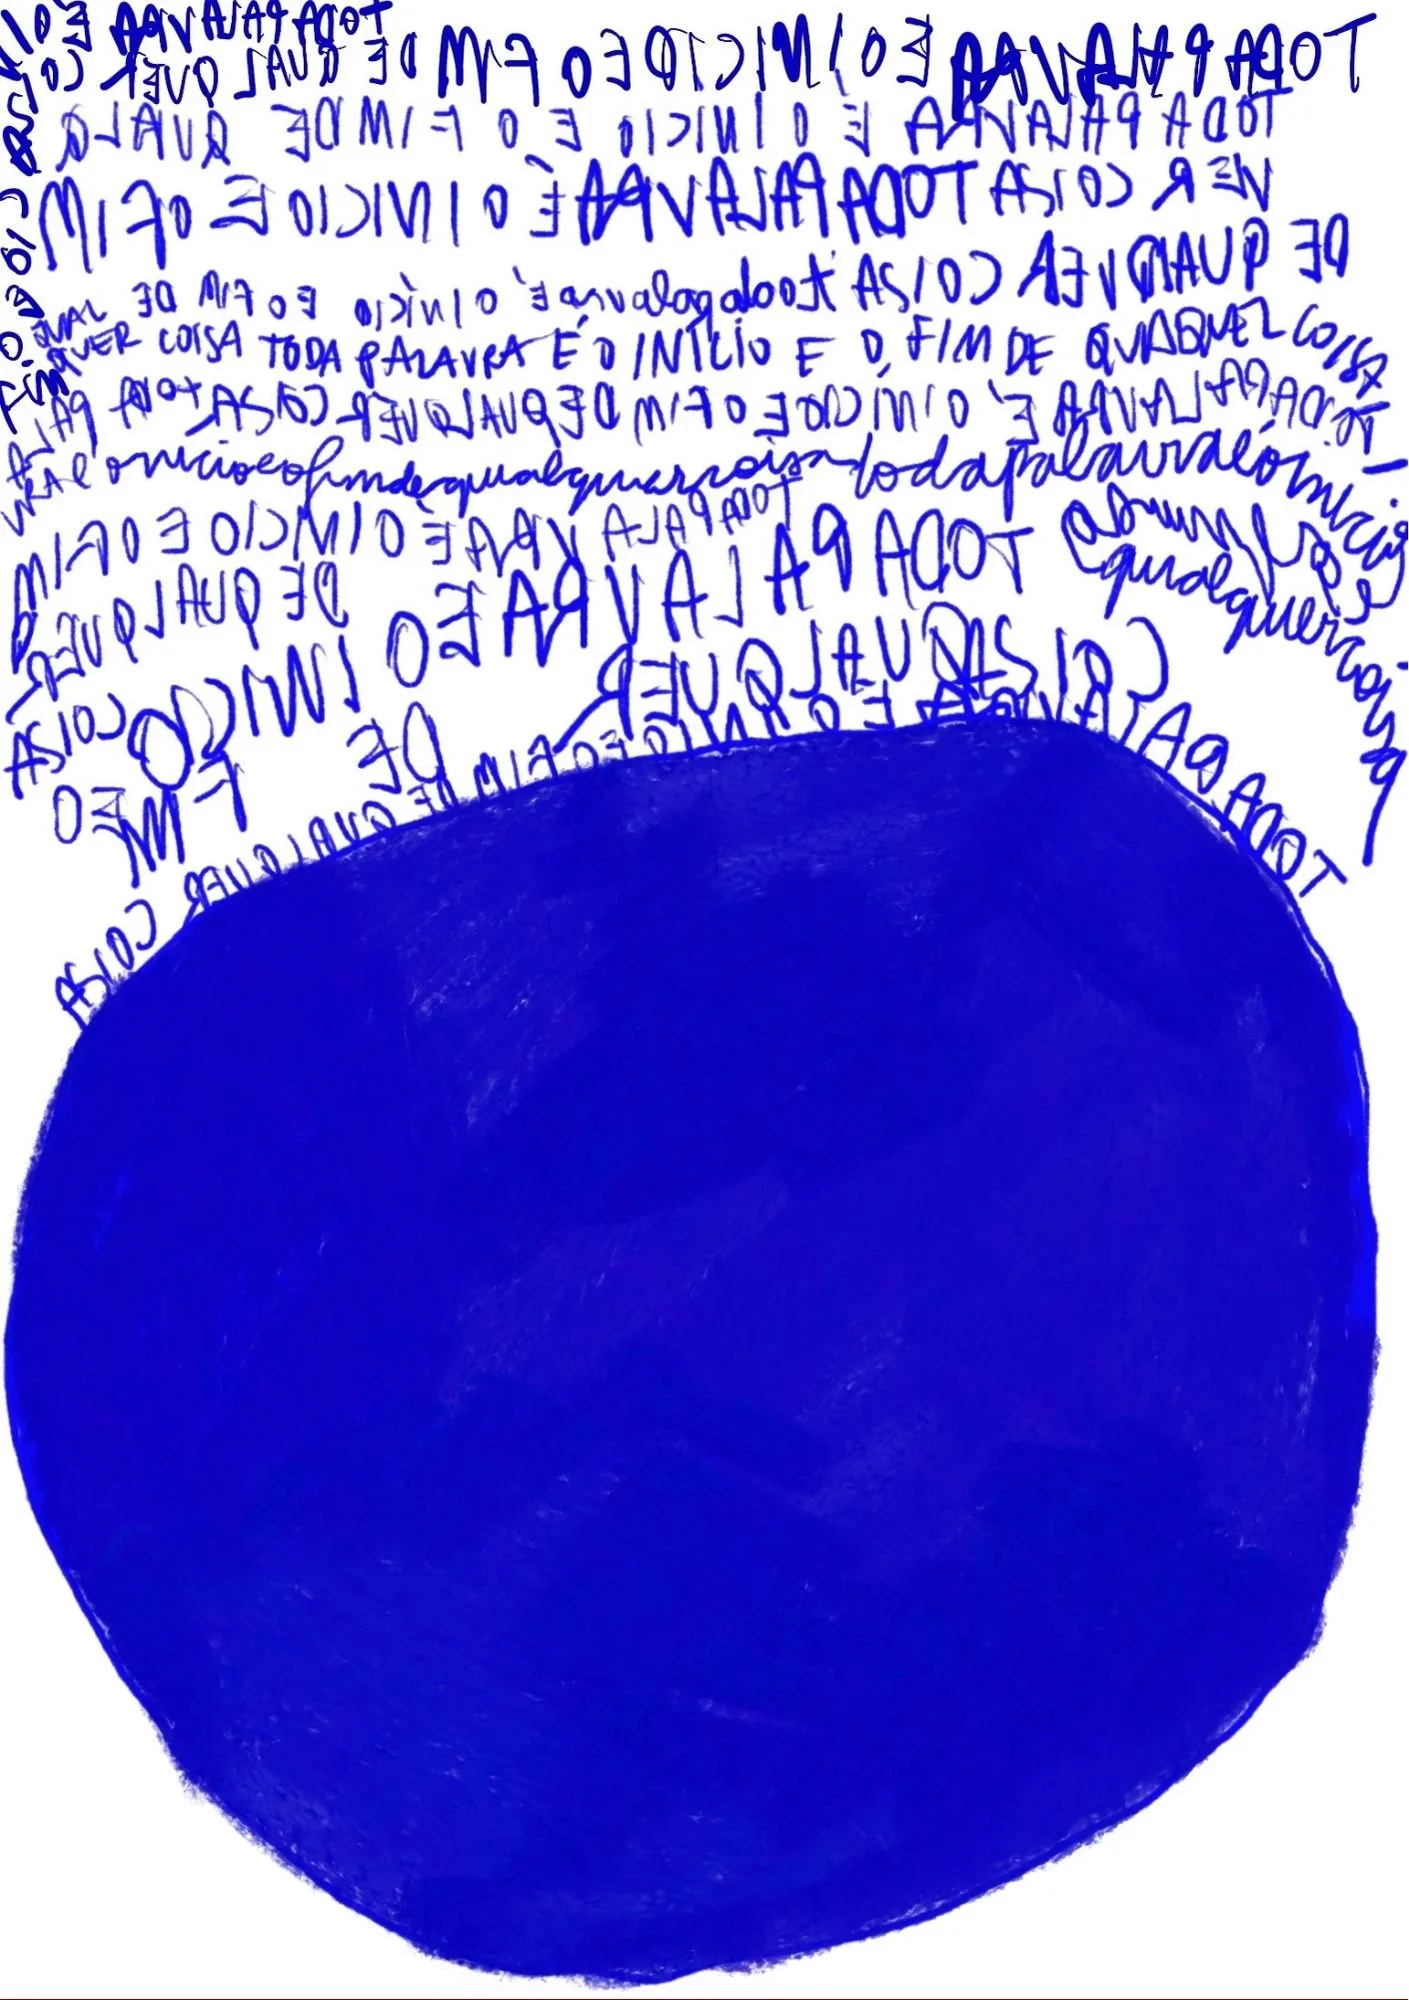 TODA PALAVRA É O INÍCIO E O FIM DE QUALQUER COISA
TODA PALAVRA É O INÍCIO E O FIM DE QUALQ
VER COISA TODA PALAVRA É O INICIO E O FIM
DE QUALQVER COISA toda palavra é o início E O FIM DE
QUAL
QUER COISA TODA PALAVRA É O INÍCIO E O FIM DE QUALQUER COISA
TODA PALAVRA É O INÍCIO E O FIM DE QUALQUER COISA toda PALA
VRA é o inicio e o fim de qualquer coisa toda palavra é o início
e o fim de qualquer coisa
TODA PALAVRA É O INICIO E O FIM
DE QUALQUER
COISA
TODA PALAVRA É O INICIO
E O FIM
DE
QUALQUER
COISA
TODA PALAVRA É O INICIO E O FIM DE QUALQUER COISA